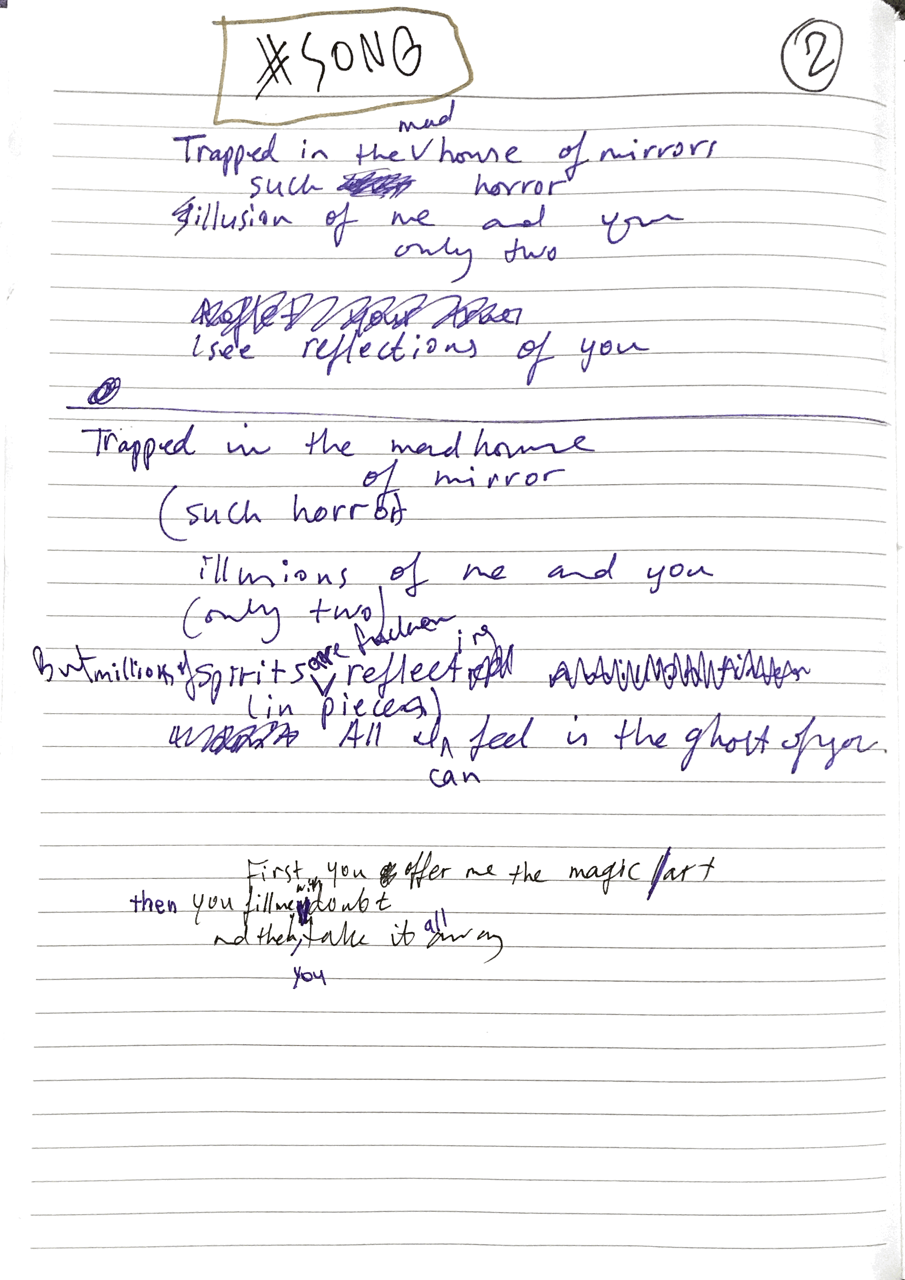 #SONG
2
mad
Trapped in the V house of mirrors
such horror
illusion of me and you
only two
I see reflections of you
Trapped in the madhouse
of mirror
(such horror)
illusions of me and you
(only two)
are ing
But millions of Spirits V reflect
(in pieces)
All I feel is the ghost of you.
can
First you offer me the magic art
with
then you fill me doubt
and then, take it all away
you